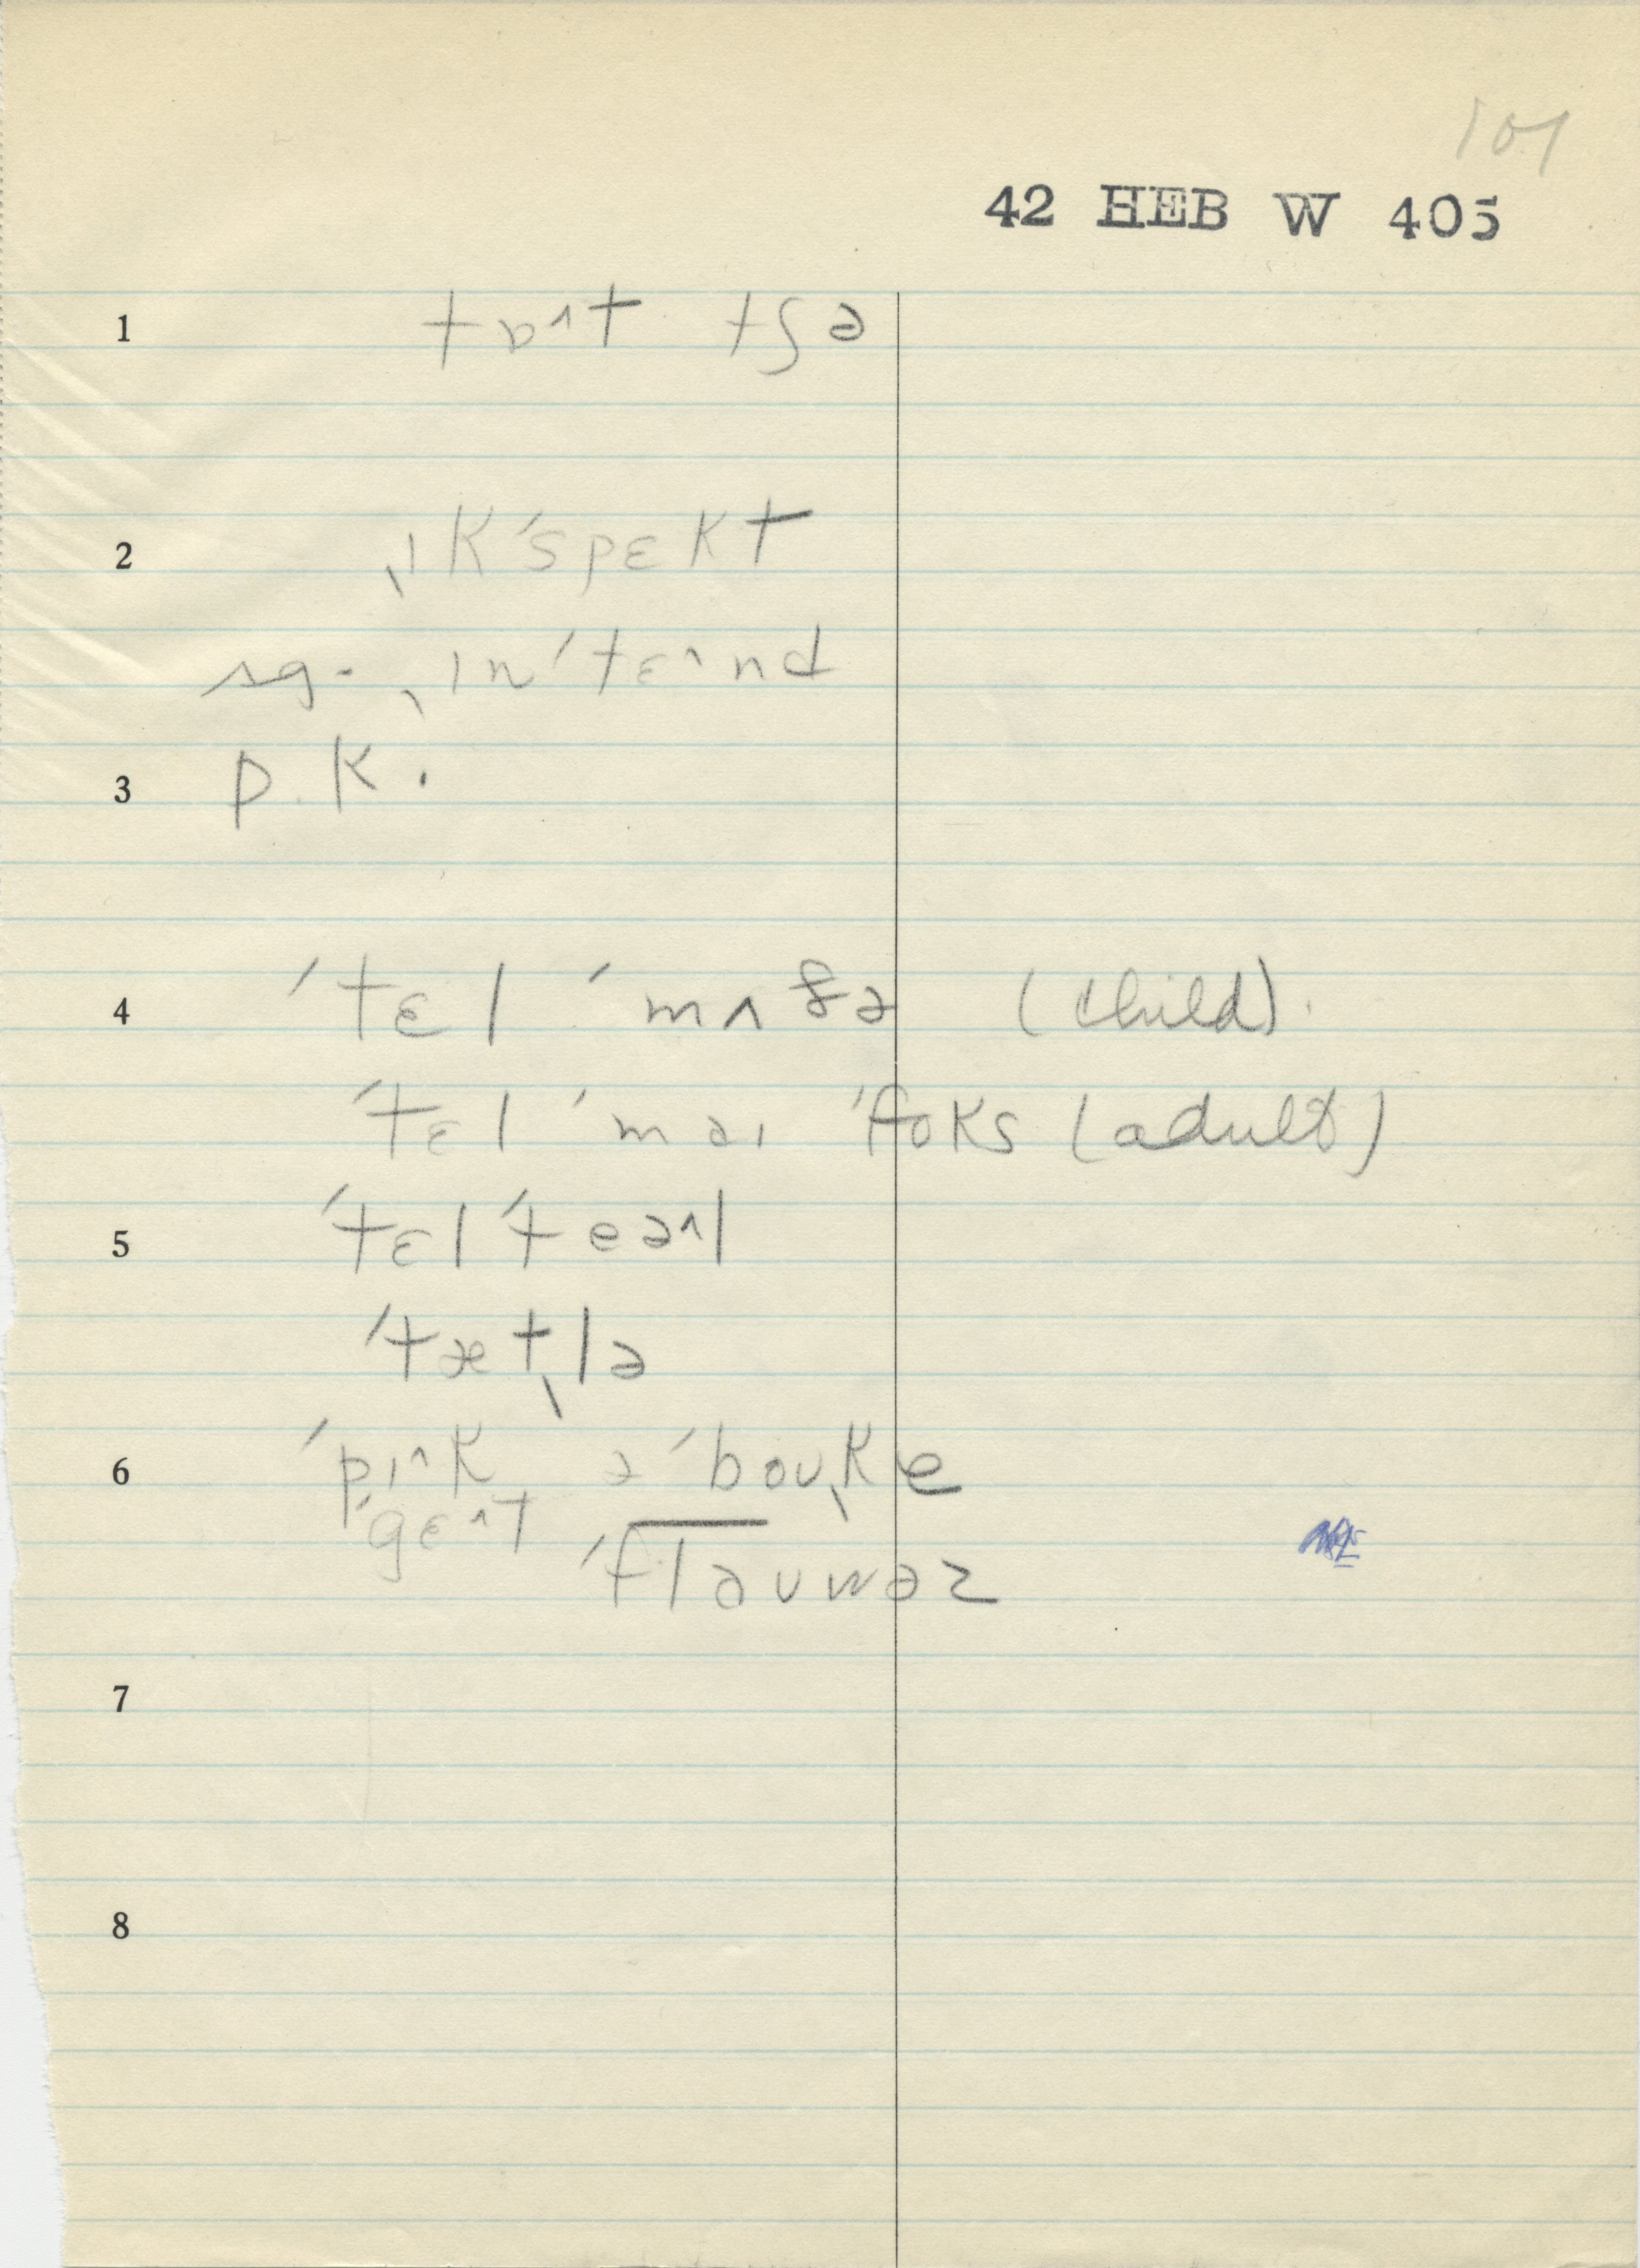 101
42 HEB W 405
1 tɒ^t tʃə
2 ˌɪkˈspɛkt
sg. ˌɪnˈtɛ^nd
3 p. k.
4 ˈtɛl ˈmʌðə (child).
ˈtɛl ˈmaɪ ˈfoks (adult)
5 ˈtɛl ˈteə^l
ˈtætˌlə
6 ˈpɪ^k əˈboʊˌke
ˈgɛ^t ˈflaʊwəz
7
8